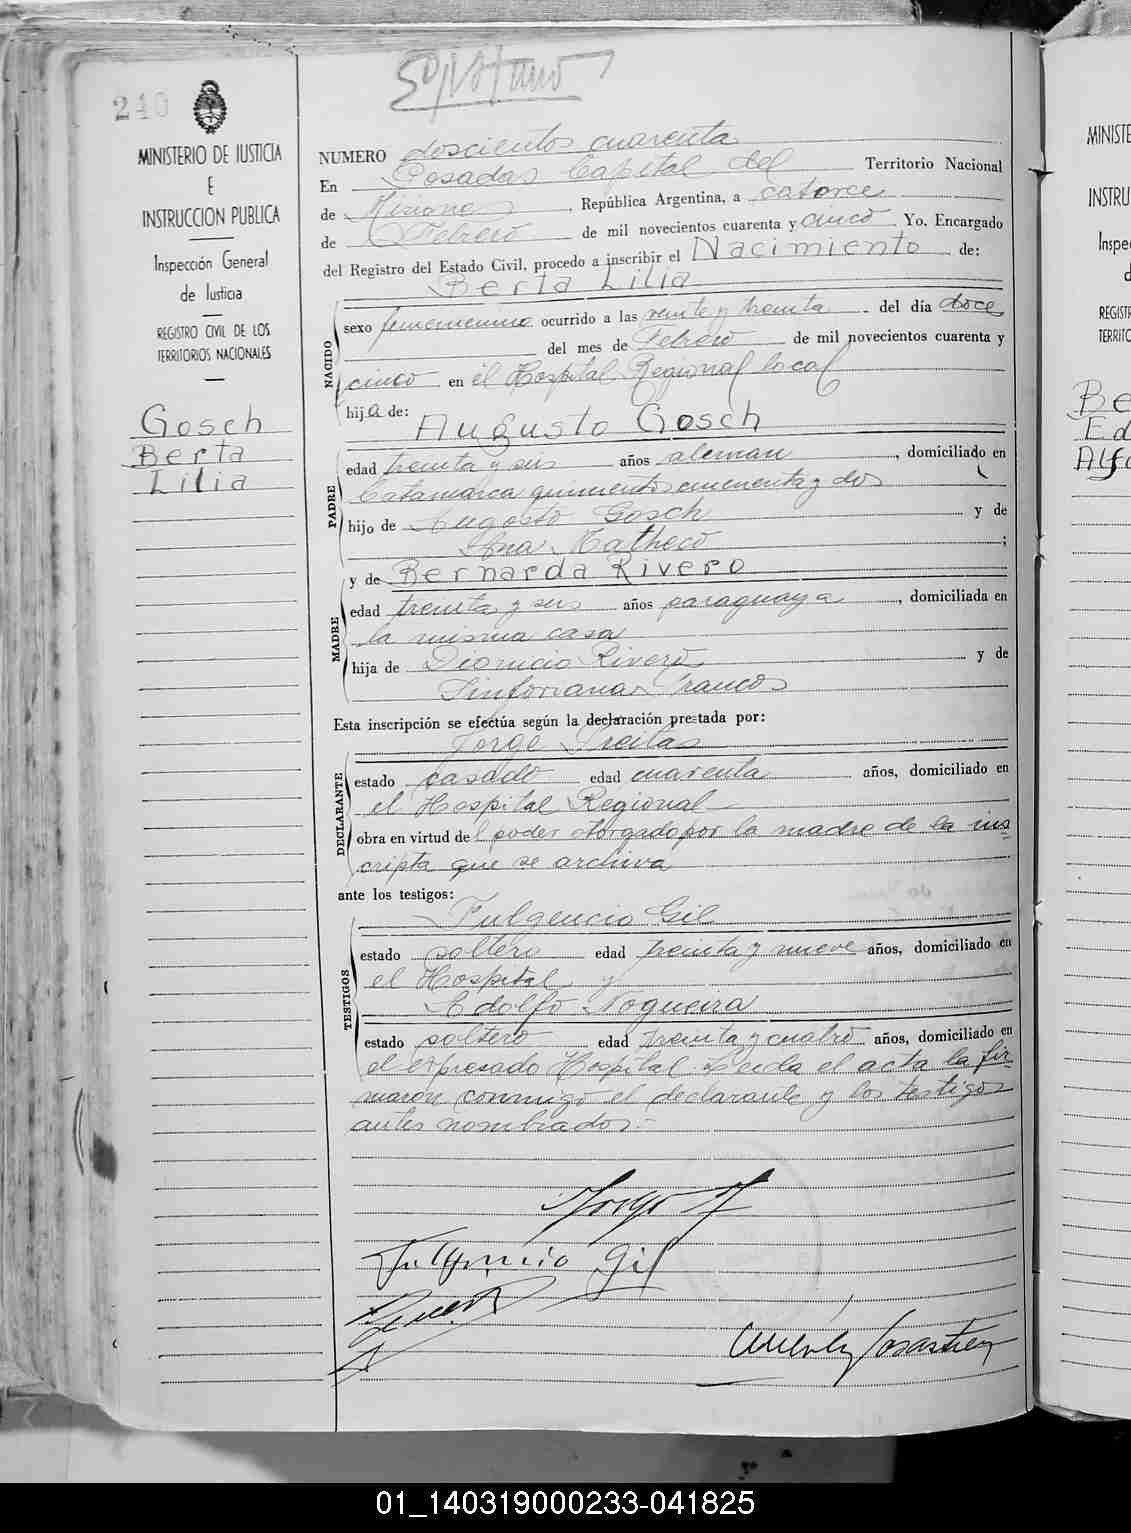 240
MINISTERIO DE JUSTICIA
E
INSTRUCCION PUBLICA
Inspección General
de Justicia
REGISTRO CIVIL DE LOS
TERRITORIOS NACIONALES
Gosch
Berta
Lilia
NUMERO doscientos cuarenta
En Posadas Capital del Territorio Nacional
de Misiones, República Argentina, a catorce
de Febrero de mil novecientos cuarenta y cinco. Yo, Encargado
del Registro del Estado Civil, procedo a inscribir el Nacimiento de:
Berta Lilia
NACIDO
sexo femenenino ocurrido a las veinte y treinta del día doce
del mes de Febrero de mil novecientos cuarenta y
cinco en el Hospital Regional local
hija de:
Augusto Gosch
PADRE
edad treinta y seis años aleman, domiciliado en
Catamarca quinientos cincuenta y dos
hijo de Augosto Gosch y de
Ana Matheco;
y de Bernarda Rivero
MADRE
edad treinta y seis años paraguaya, domiciliada en
la misma casa
hija de Dionicio Rivero y de
Sinforiana Francos
Esta inscripción se efectúa según la declaración prestada por:
Jorge Freitas
DECLARANTE
estado casado edad cuarenta años, domiciliado en
el Hospital Regional
obra en virtud del poder otorgado por la madre de la ins-
cripta que se archiva
ante los testigos:
Fulgencio Gil
TESTIGOS
estado soltero edad treinta y nueve años, domiciliado en
el Hospital y
Adolfo Nogueira
estado soltero edad treinta y cuatro años, domiciliado en
el expresado Hospital. Leida el acta la fir-
maron conmigo el declarante y los testigos
antes nombrados.-
Jorge F
Fulgencio Gil
MINISTE
INSTRU
Inspe
d
REGIST
TERRITO
Be
Ed
Alf
01_140319000233-041825